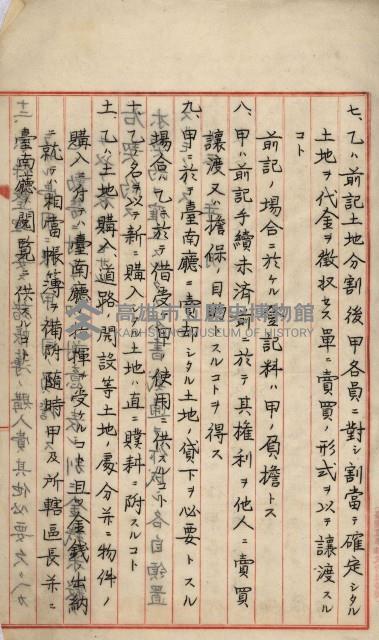 七、乙ハ前記土地分割後甲各員ニ對シ割當テ確定シタル
土地ヲ代金ヲ徴収セス單ニ賣買ノ形式ヲ以テ讓渡スル
コト
前記ノ場合ニ於ケル登記料ハ甲ノ負擔トス
八、甲ハ前記手續未済前ニ於テ其權利ヲ他人ニ賣買
讓渡又ハ擔保ノ目的トスルコトヲ得ス
九、甲ニ於テ臺南廳ニ賣却シタル土地ノ貸下ヲ必要トスル
場合ハ乙ニ於テ借受ケ甲ノ使用ニ供スルコト
十、乙ノ名ヲ以テ新ニ購入シタル土地ハ直ニ贌耕ニ附スルコト
土、乙ハ土地ノ購入、道路ノ開設等土地ノ處分并ニ物件ノ
購入ニ付テハ臺南廳ノ指揮ヲ受クルコト且金錢出納
ニ就テ相當ノ帳簿ヲ備附随時甲及所轄區長并ニ
臺南廳ノ閲覧ニ供スルコト
高雄市立歷史博物館
KAOHSIUNG MUSEUM OF HISTORY